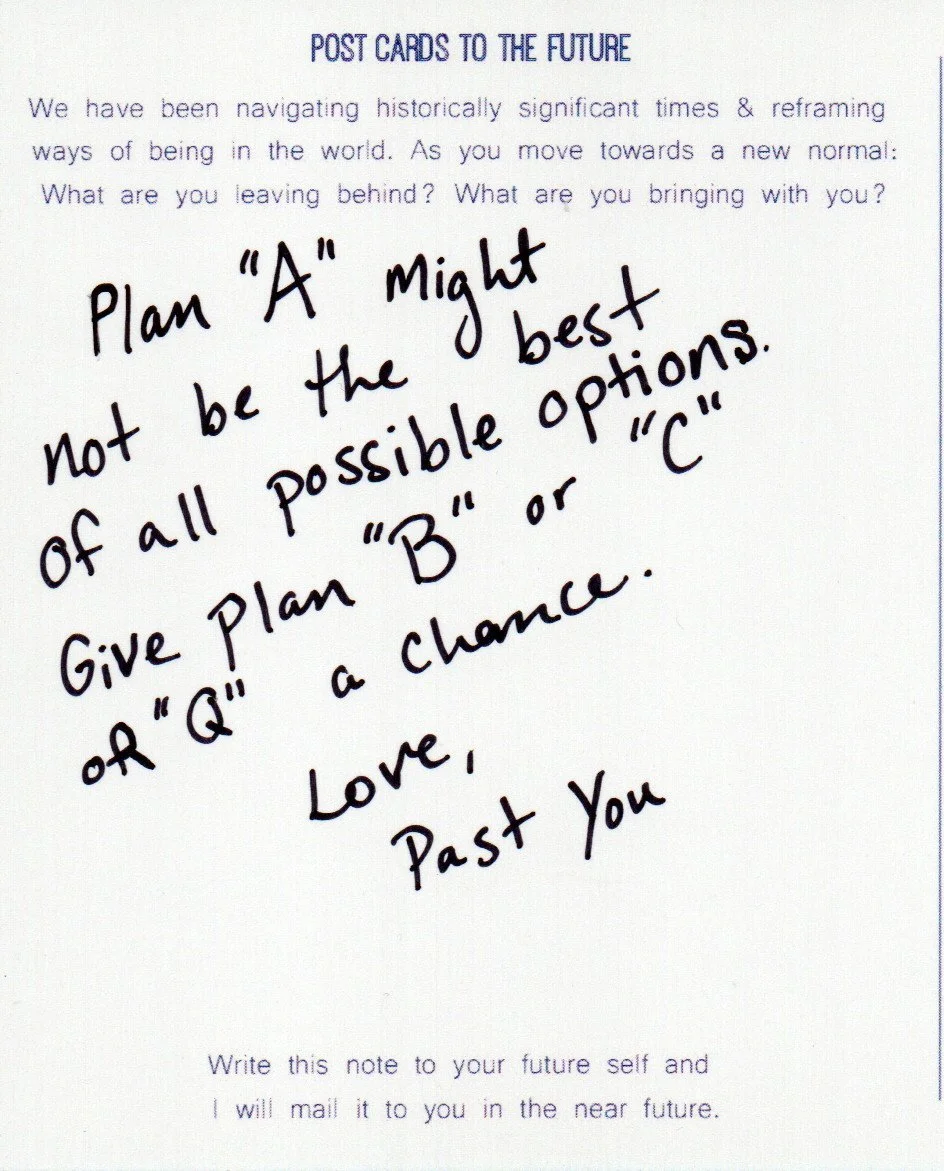 POST CARDS TO THE FUTURE
We have been navigating historically significant times & reframing
ways of being in the world. As you move towards a new normal:
What are you leaving behind? What are you bringing with you?
Plan "A" might
not be the best
of all possible options.
Give Plan "B" or "C"
or "Q" a chance.
Love,
Past You
Write this note to your future self and
I will mail it to you in the near future.